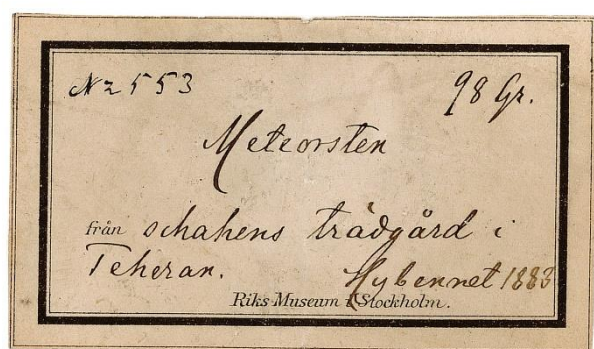 N2 553 98 Gr.
Meteorsten
från schahens trädgård i
Teheran. Hybennet 1883
Riks Museum i Stockholm.